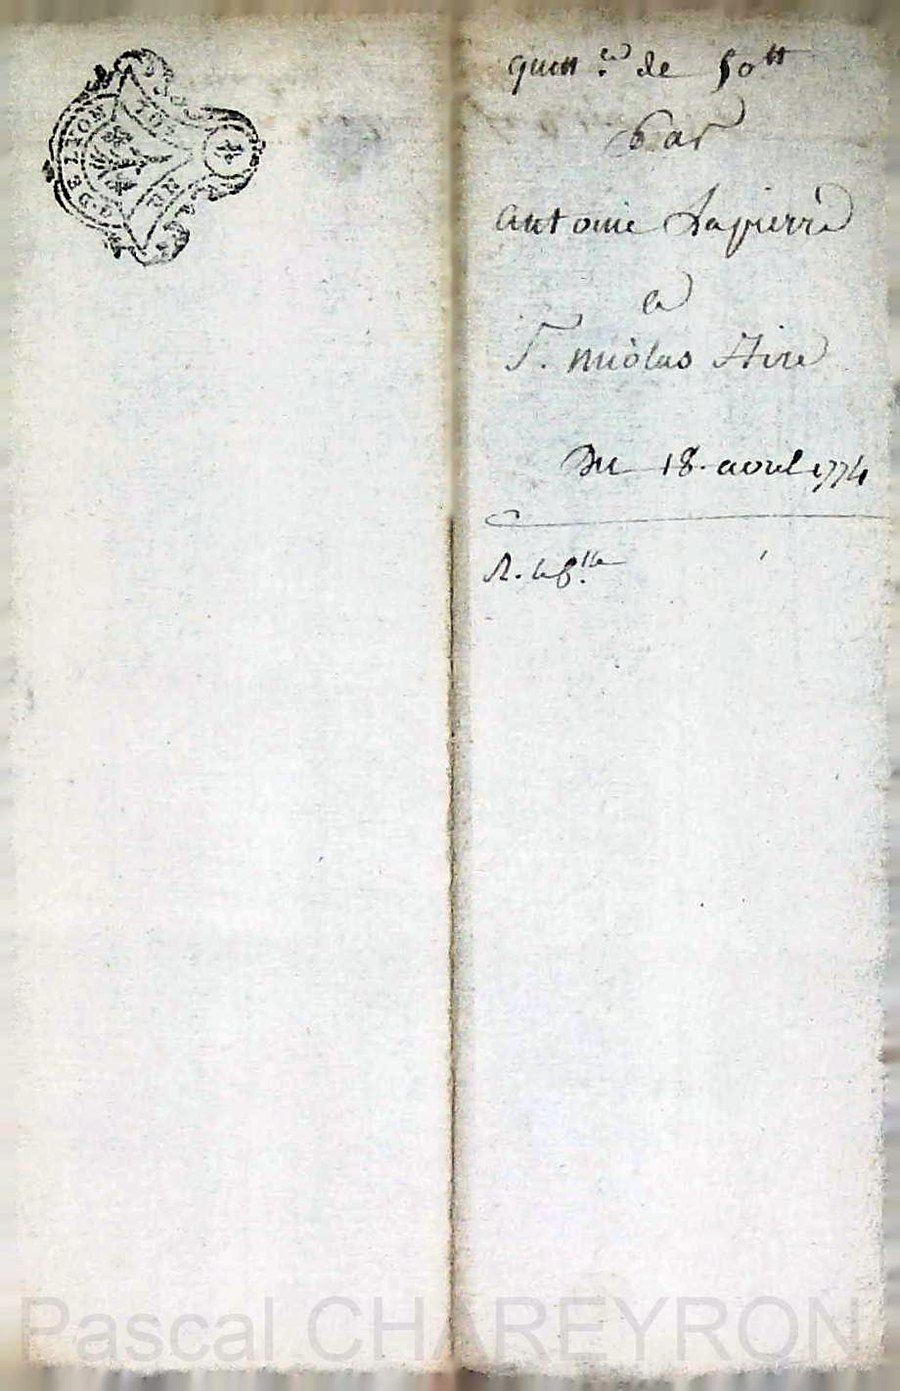 G. DE LYON
quitt.ce de 50tt
Par
antoine Lapierre
a
S. nicolas
Du 18. avril 1774
Pascal CHAREYRON